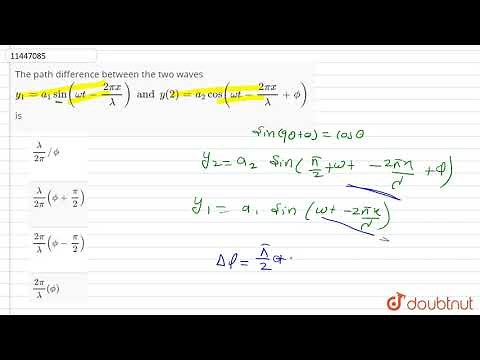 11447085
The path difference between the two waves
y₁ = a₁ sin(ωt − 2πx/λ) and y(2) = a₂ cos(ωt − 2πx/λ + φ)
is
λ/2π /φ
λ/2π (φ + π/2)
2π/λ (φ − π/2)
2π/λ (φ)
sin(90+θ) = cosθ
y₂ = a₂ sin(π/2 + ωt − 2πx/λ + φ)
y₁ = a₁ sin(ωt − 2πx/λ)
Δφ = π/2
doubtnut